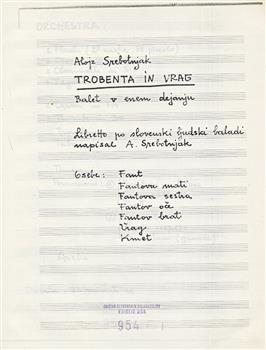 Alojz Srebotnjak
TROBENTA IN VRAG
Balet v enem dejanju
Libretto po slovenski ljudski baladi
napisal A. Srebotnjak
Osebe: Fant
Fantova mati
Fantova sestra
Fantov oče
Fantov brat
Vrag
Kmet
954